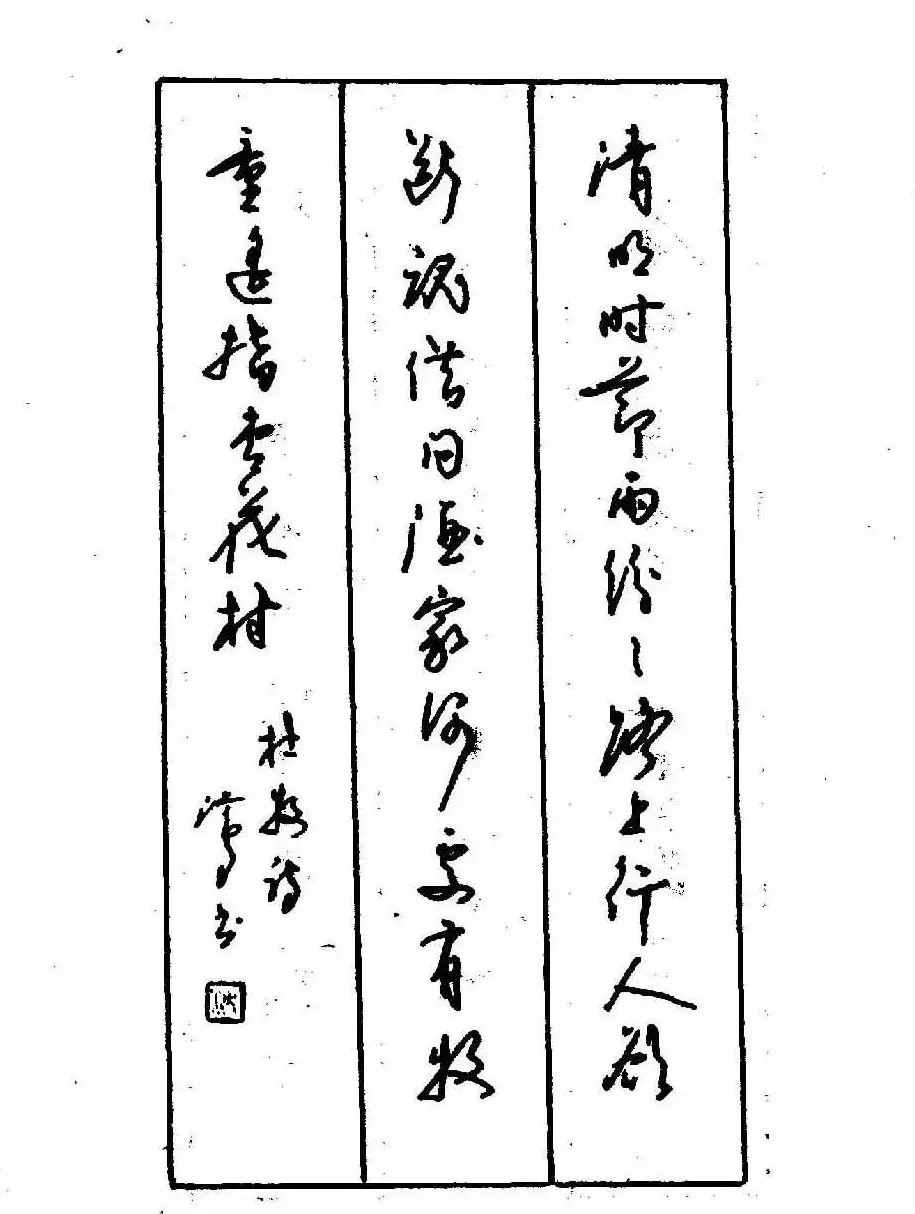 清明时节雨纷々路上行人欲
断魂借问酒家何处有牧
童遥指杏花村
杜牧诗
书